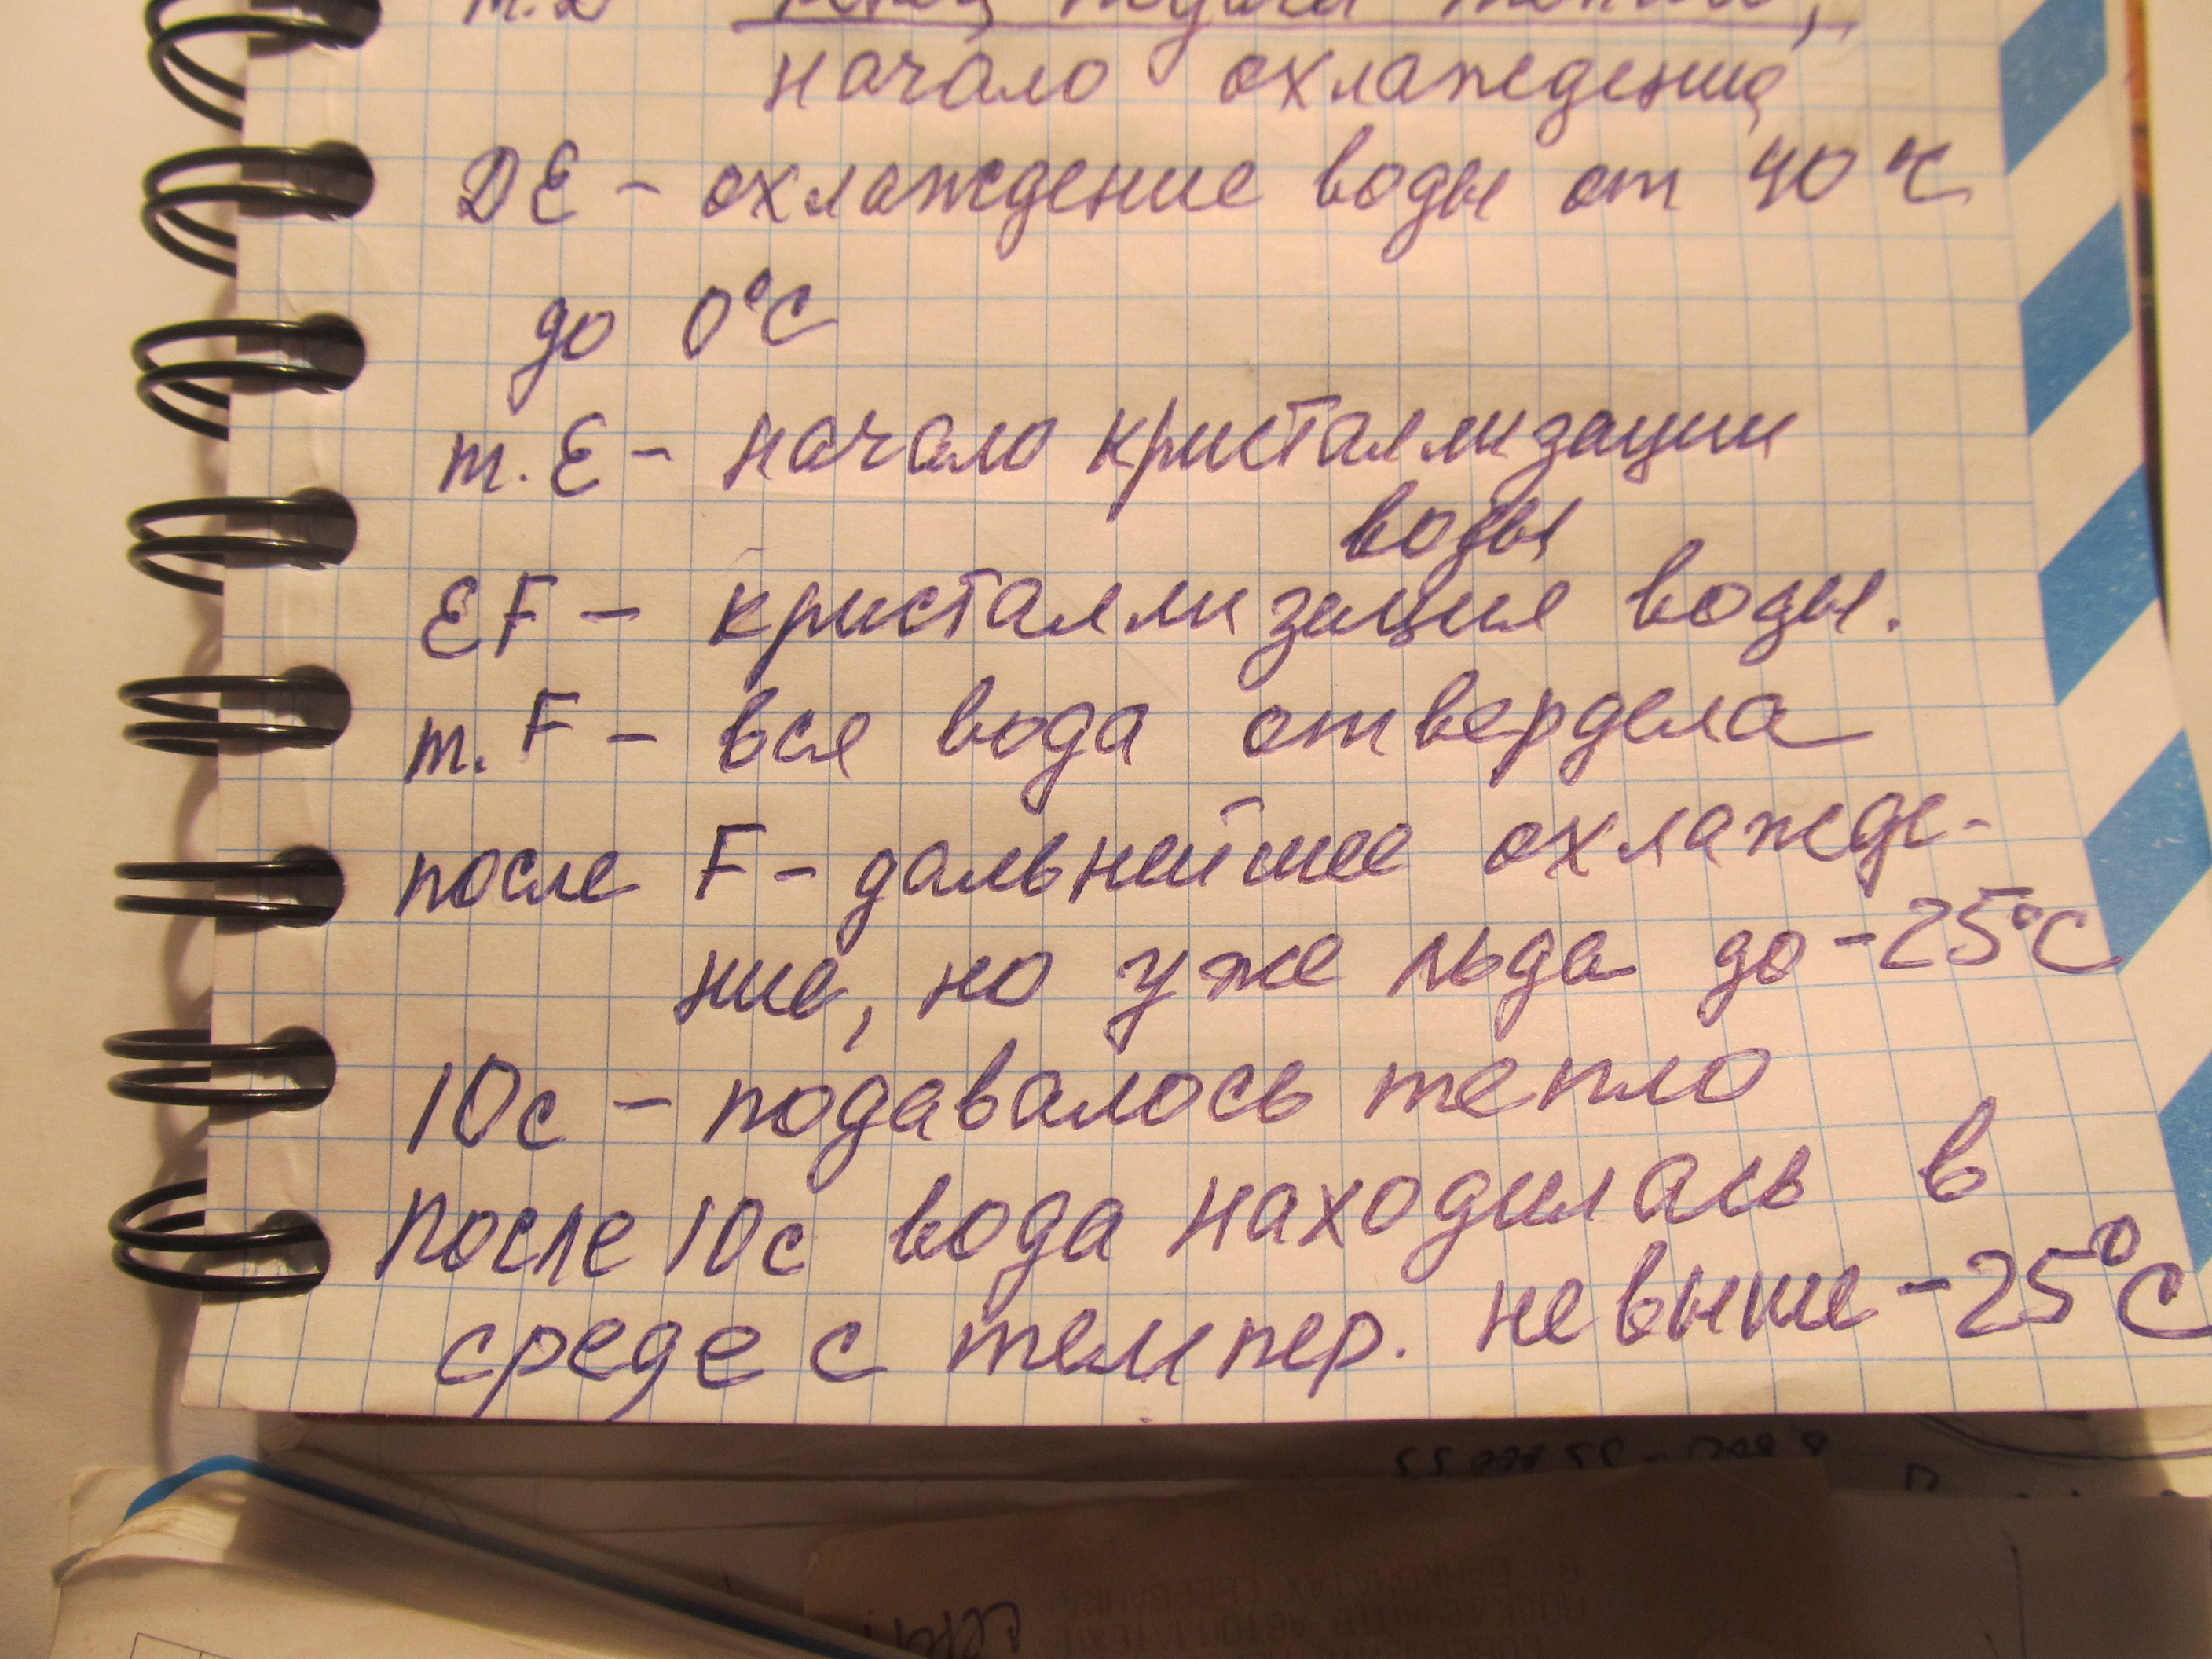 т.D конец подачи тепла,
начало охлаждения
DE - охлаждение воды от 40°C
до 0°C
т.E - начало кристаллизации
воды
EF - кристаллизация воды.
т.F - вся вода отвердела
после F - дальнейшее охлажде-
ние, но уже льда до -25°C
10с - подавалось тепло
после 10с вода находилась в
среде с темпер. не выше -25°C